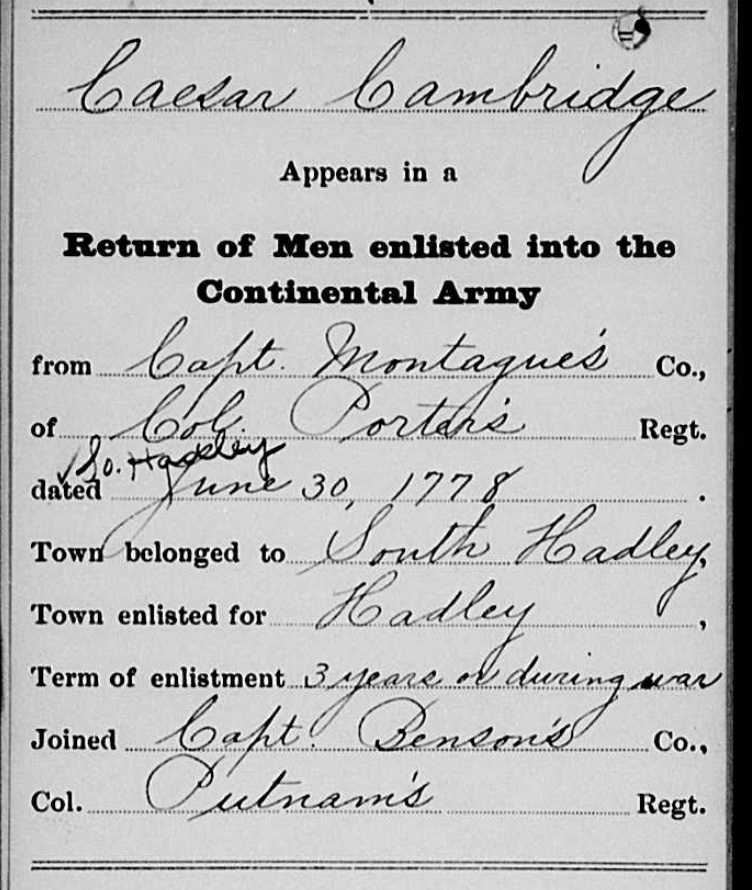 Caesar Cambridge
Appears in a
Return of Men enlisted into the
Continental Army
from Capt. Montague's Co.,
of Col. Porter's Regt.
✓ So. Hadley
dated June 30, 1778 .
Town belonged to South Hadley,
Town enlisted for Hadley ,
Term of enlistment 3 years or during war
Joined Capt. Benson's Co.,
Col. Putnam's Regt.